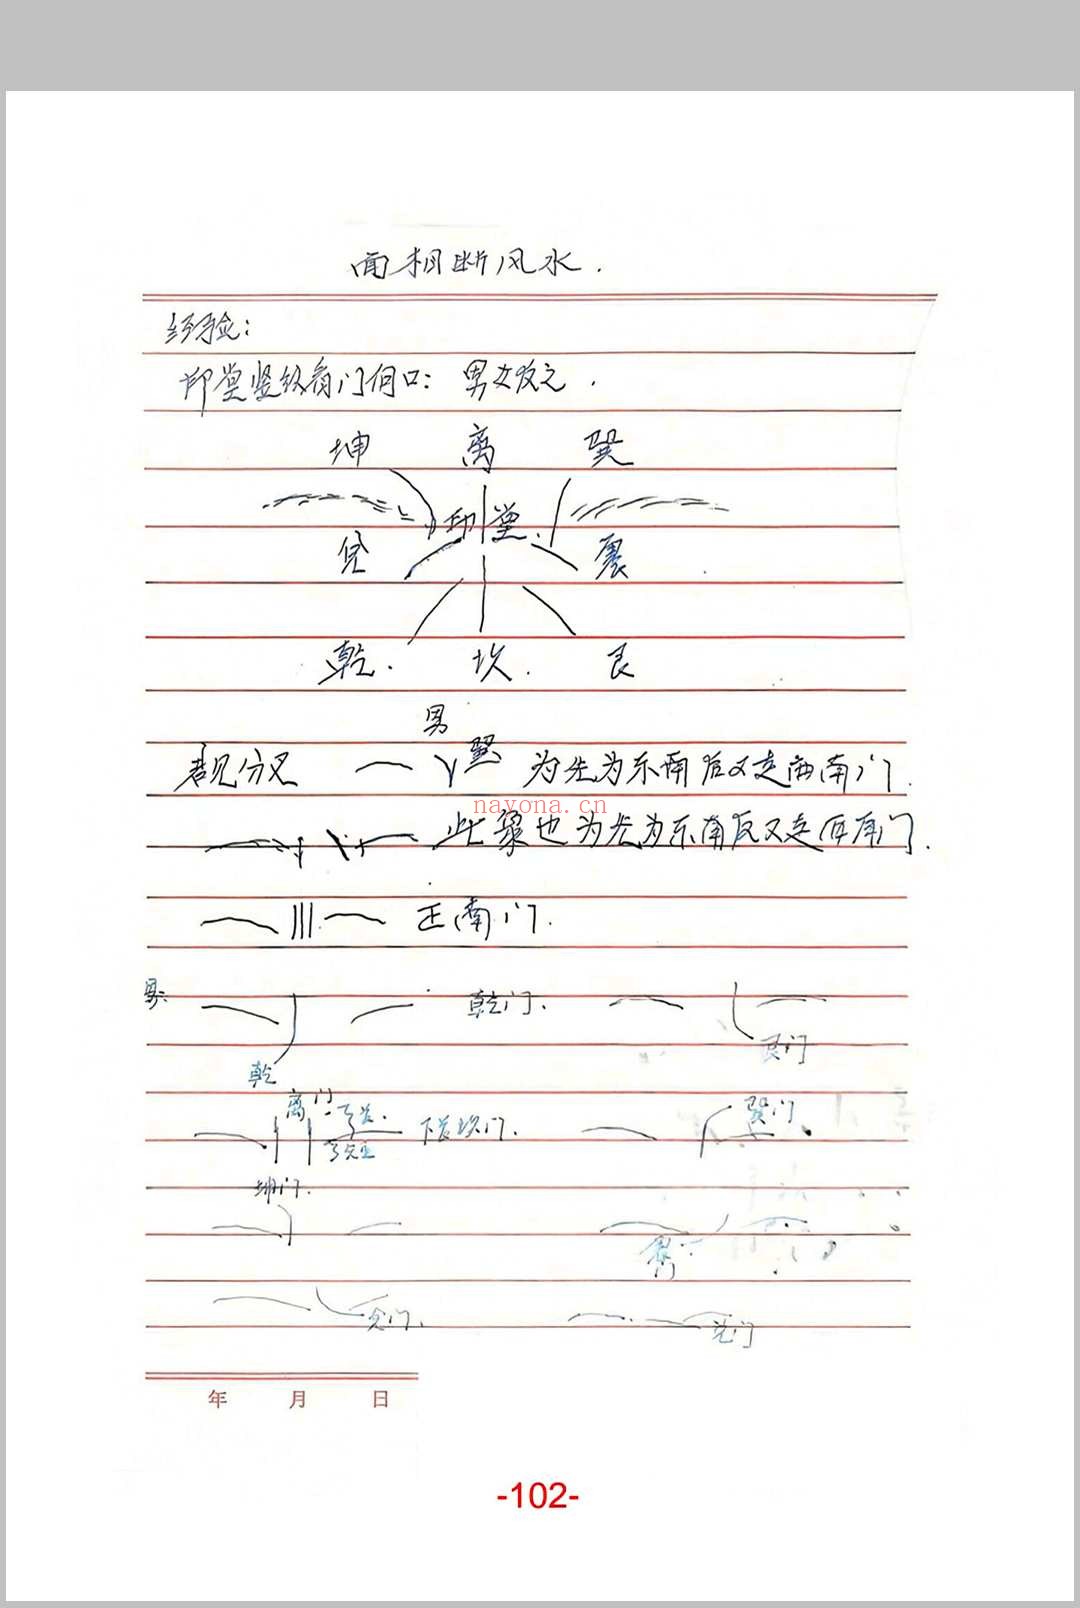 面相断风水.
经验:
印堂竖纹看门向口: 男女反之.
坤 离 巽
印堂.
兑 震
乾. 坎. 艮
男
巽
表见分叉 为先为东南后又走西南门.
nayona.cn
此象也为先为东南后又走西南门.
正南门.
男:
乾门.
艮门
乾
离门
巽门
坎门.
坤门.
兑门
年 月 日
-102-